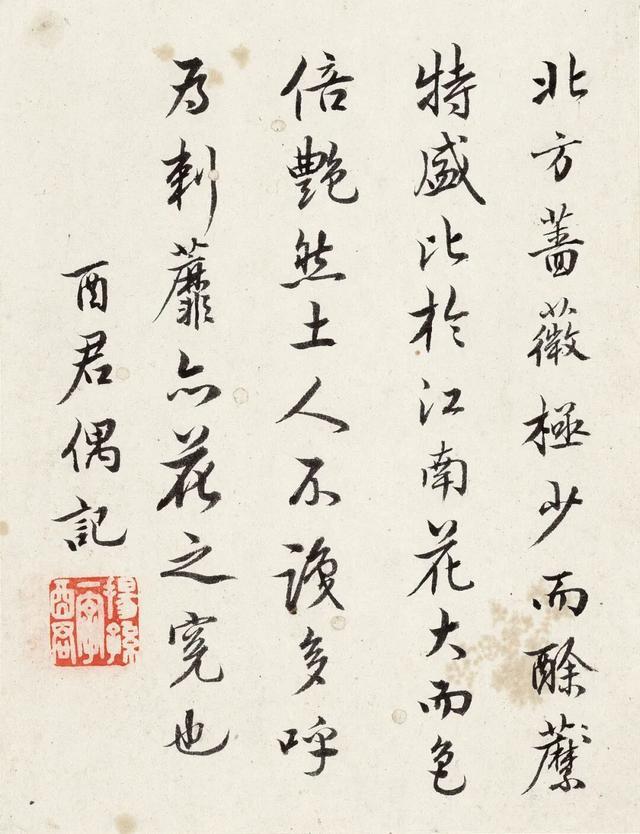 北方薔薇極少而酴䕷
特盛比於江南花大而色
倍艷然土人不識多呼
為刺蘼亦花之冤也
酉君偶記
一字
酉君